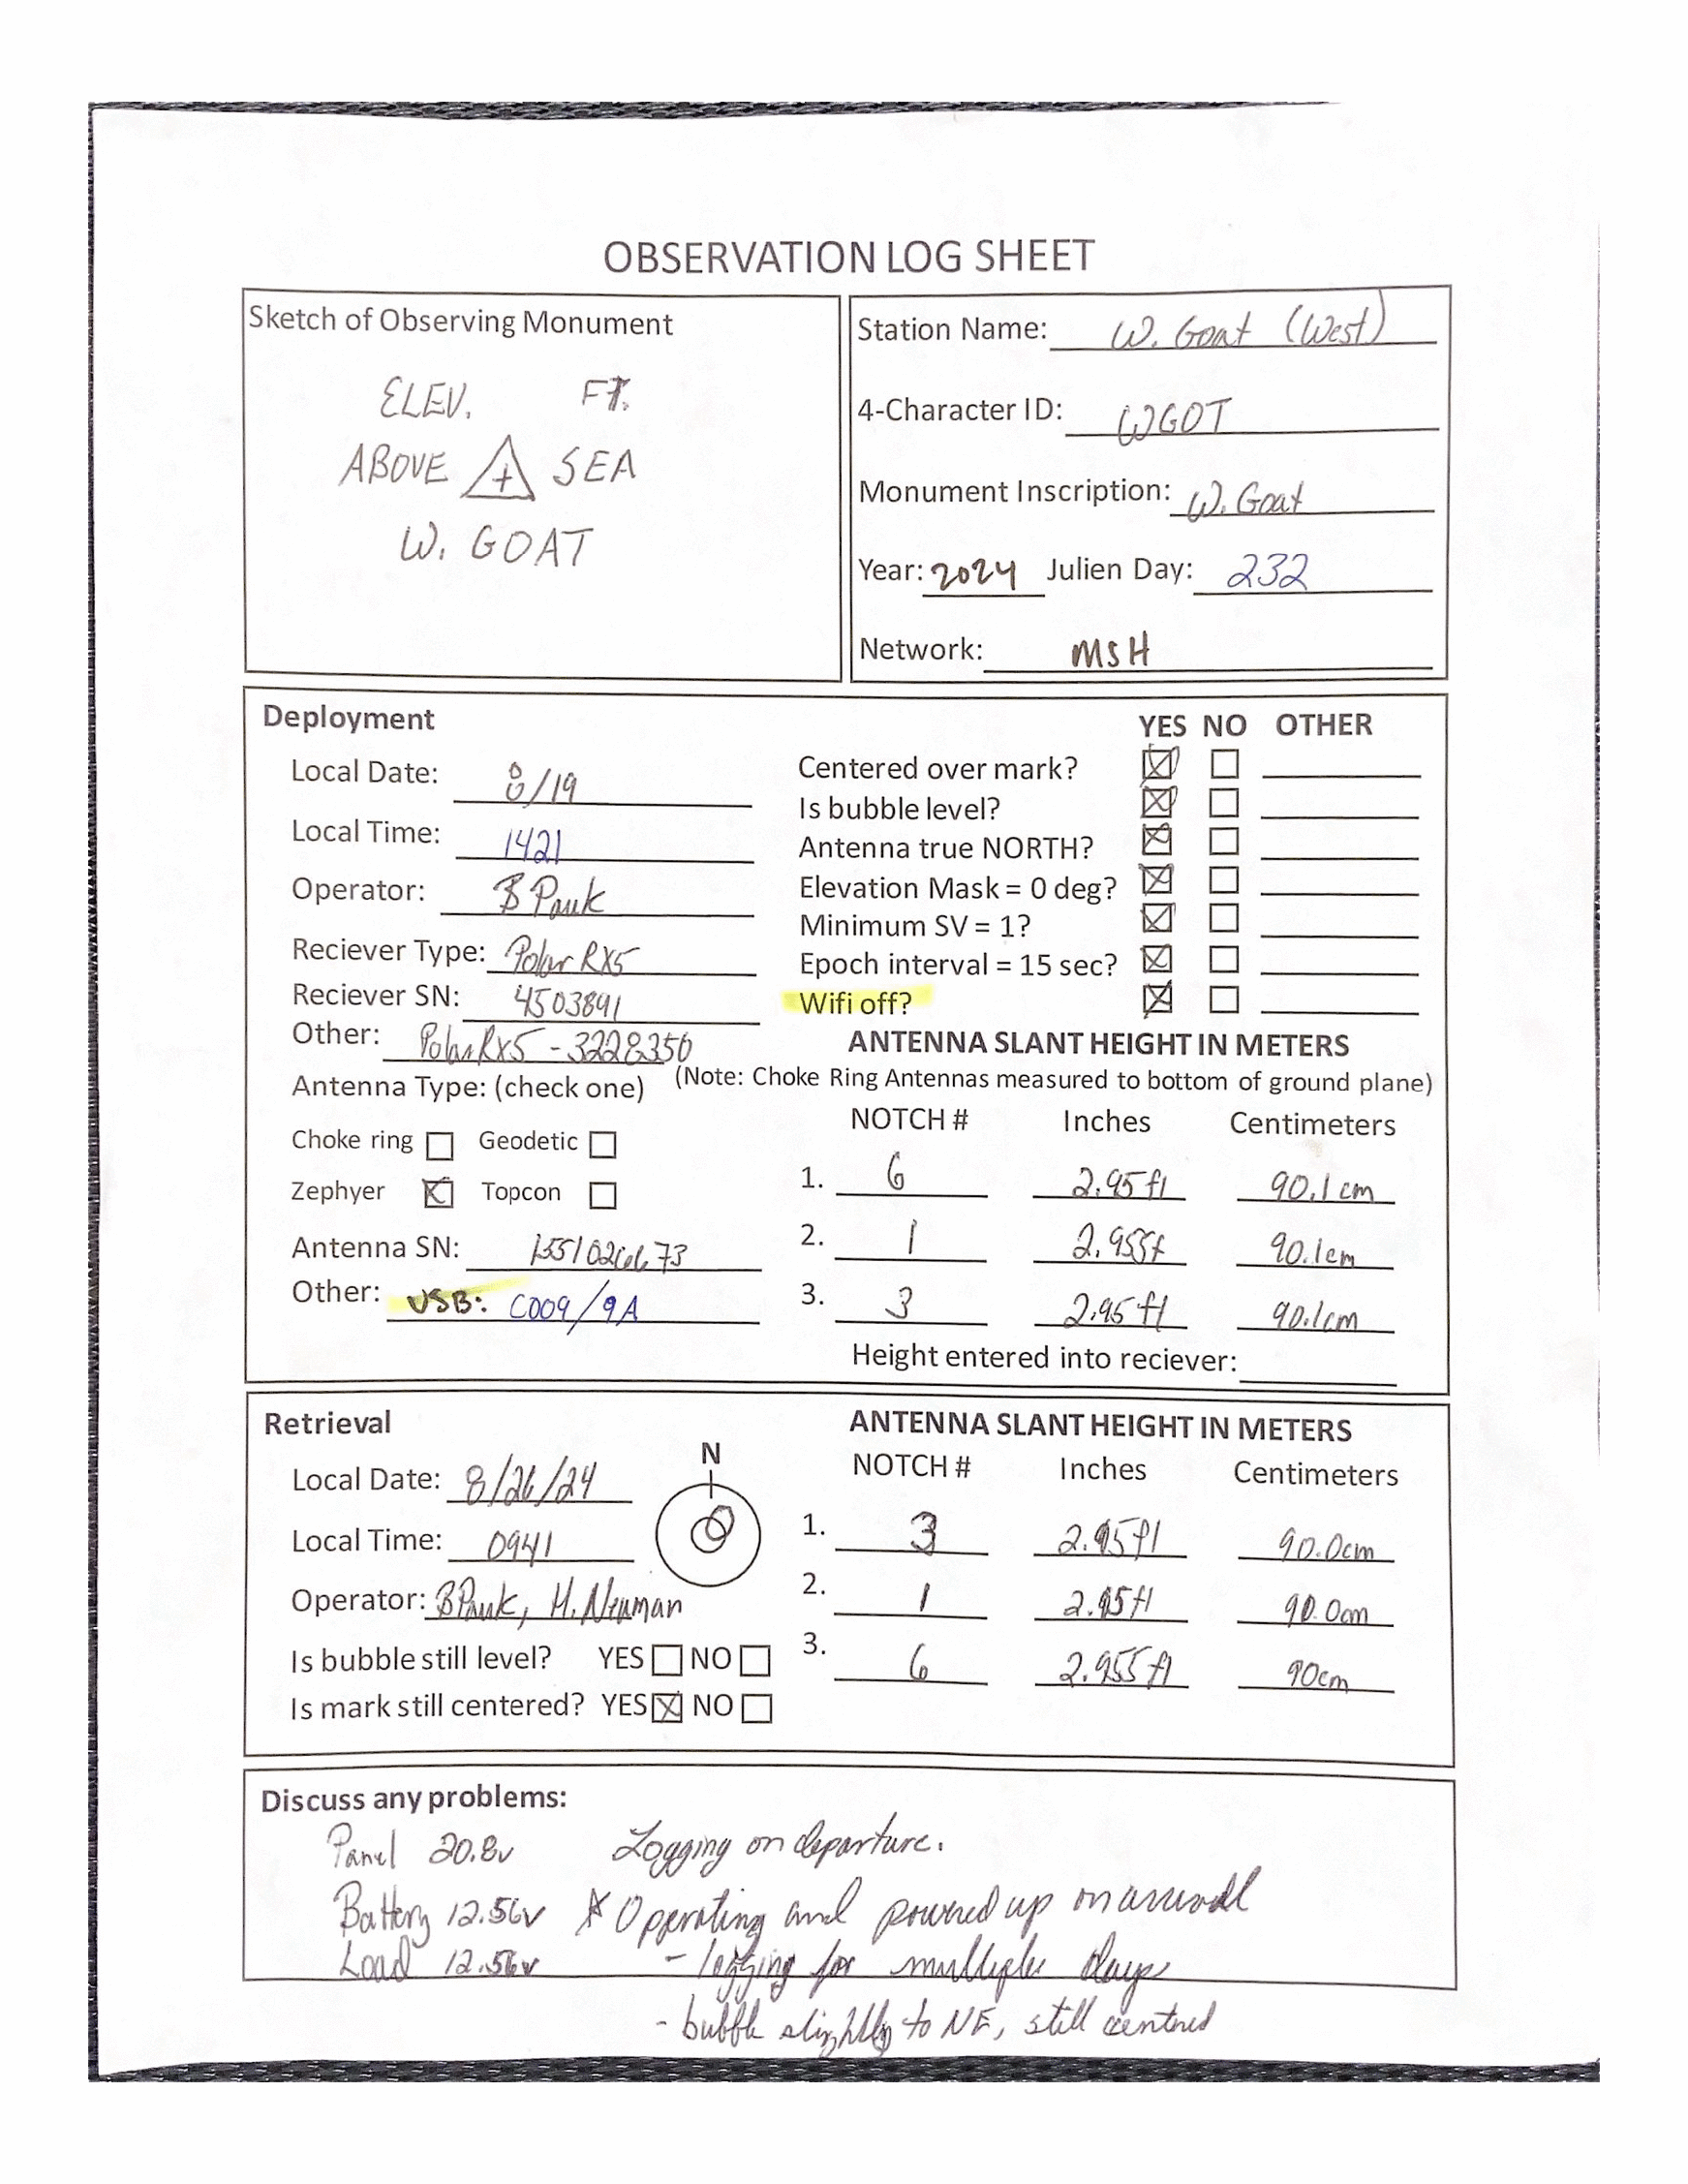 OBSERVATION LOG SHEET
Sketch of Observing Monument
ELEV. FT.
ABOVE + SEA
W. GOAT
Station Name: W. Goat (West)
4-Character ID: WGOT
Monument Inscription: W. Goat
Year: 2024 Julien Day: 232
Network: MSH
Deployment
YES NO OTHER
Local Date: 8/19
Local Time: 1421
Operator: B Pauk
Reciever Type: PolarRX5
Reciever SN: 4503891
Other: PolaRx5 - 3228350
Antenna Type: (check one)
Choke ring ☐ Geodetic ☐
Zephyer ☒ Topcon ☐
Antenna SN: 1551026673
Other: USB: C009/9A
Centered over mark? ☒ ☐
Is bubble level? ☒ ☐
Antenna true NORTH? ☒ ☐
Elevation Mask = 0 deg? ☒ ☐
Minimum SV = 1? ☒ ☐
Epoch interval = 15 sec? ☒ ☐
Wifi off? ☒ ☐
ANTENNA SLANT HEIGHT IN METERS
(Note: Choke Ring Antennas measured to bottom of ground plane)
NOTCH # Inches Centimeters
1. 6 2.95 ft 90.1 cm
2. 1 2.955ft 90.1cm
3. 3 2.95 ft 90.1cm
Height entered into reciever:
Retrieval
Local Date: 8/26/24
Local Time: 0941
Operator: BPauk, H. Neuman
Is bubble still level? YES ☐ NO ☐
Is mark still centered? YES ☒ NO ☐
N
ANTENNA SLANT HEIGHT IN METERS
NOTCH # Inches Centimeters
1. 3 2.95ft 90.0cm
2. 1 2.95ft 90.0cm
3. 6 2.955 ft 90cm
Discuss any problems:
Panel 20.8v Logging on departure.
Battery 12.56v * Operating and powered up on arrival
Load 12.56v - logging for multiple days
- bubble slightly to NE, still centred